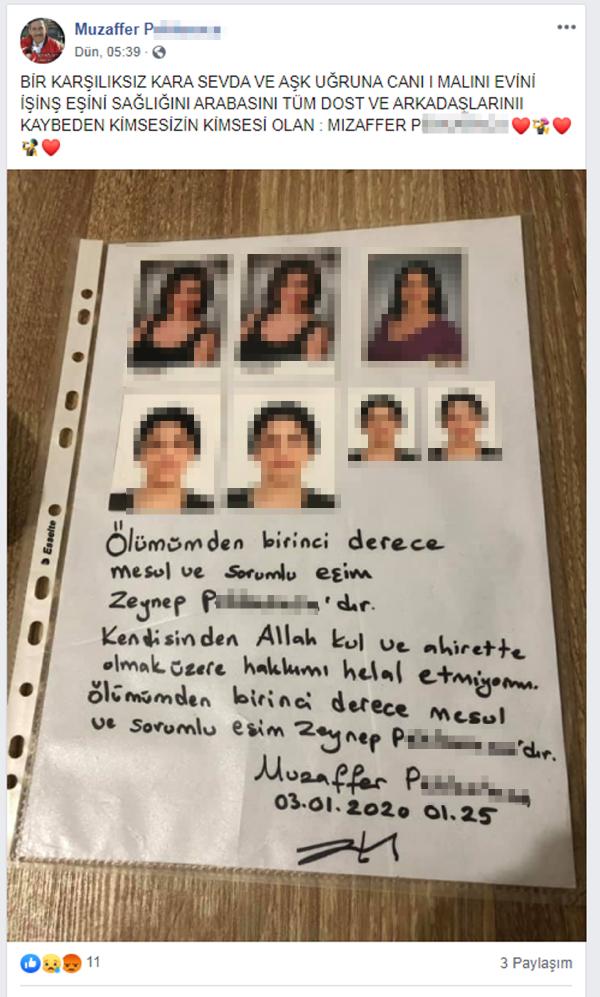 Muzaffer P
Dün, 05:39 ·
BİR KARŞILIKSIZ KARA SEVDA VE AŞK UĞRUNA CANI I MALINI EVİNİ
İŞİNŞ EŞİNİ SAĞLIĞINI ARABASINI TÜM DOST VE ARKADAŞLARINII
KAYBEDEN KİMSESİZİN KİMSESİ OLAN : MIZAFFER P
Esselte
Ölümümden birinci derece
mesul ve sorumlu eşim
Zeynep P 'dır.
Kendisinden Allah kul ve ahirette
olmak üzere hakkımı helal etmiyorum.
Ölümümden birinci derece mesul
ve sorumlu eşim Zeynep P 'dır.
Muzaffer P
03.01.2020 01.25
11
3 Paylaşım